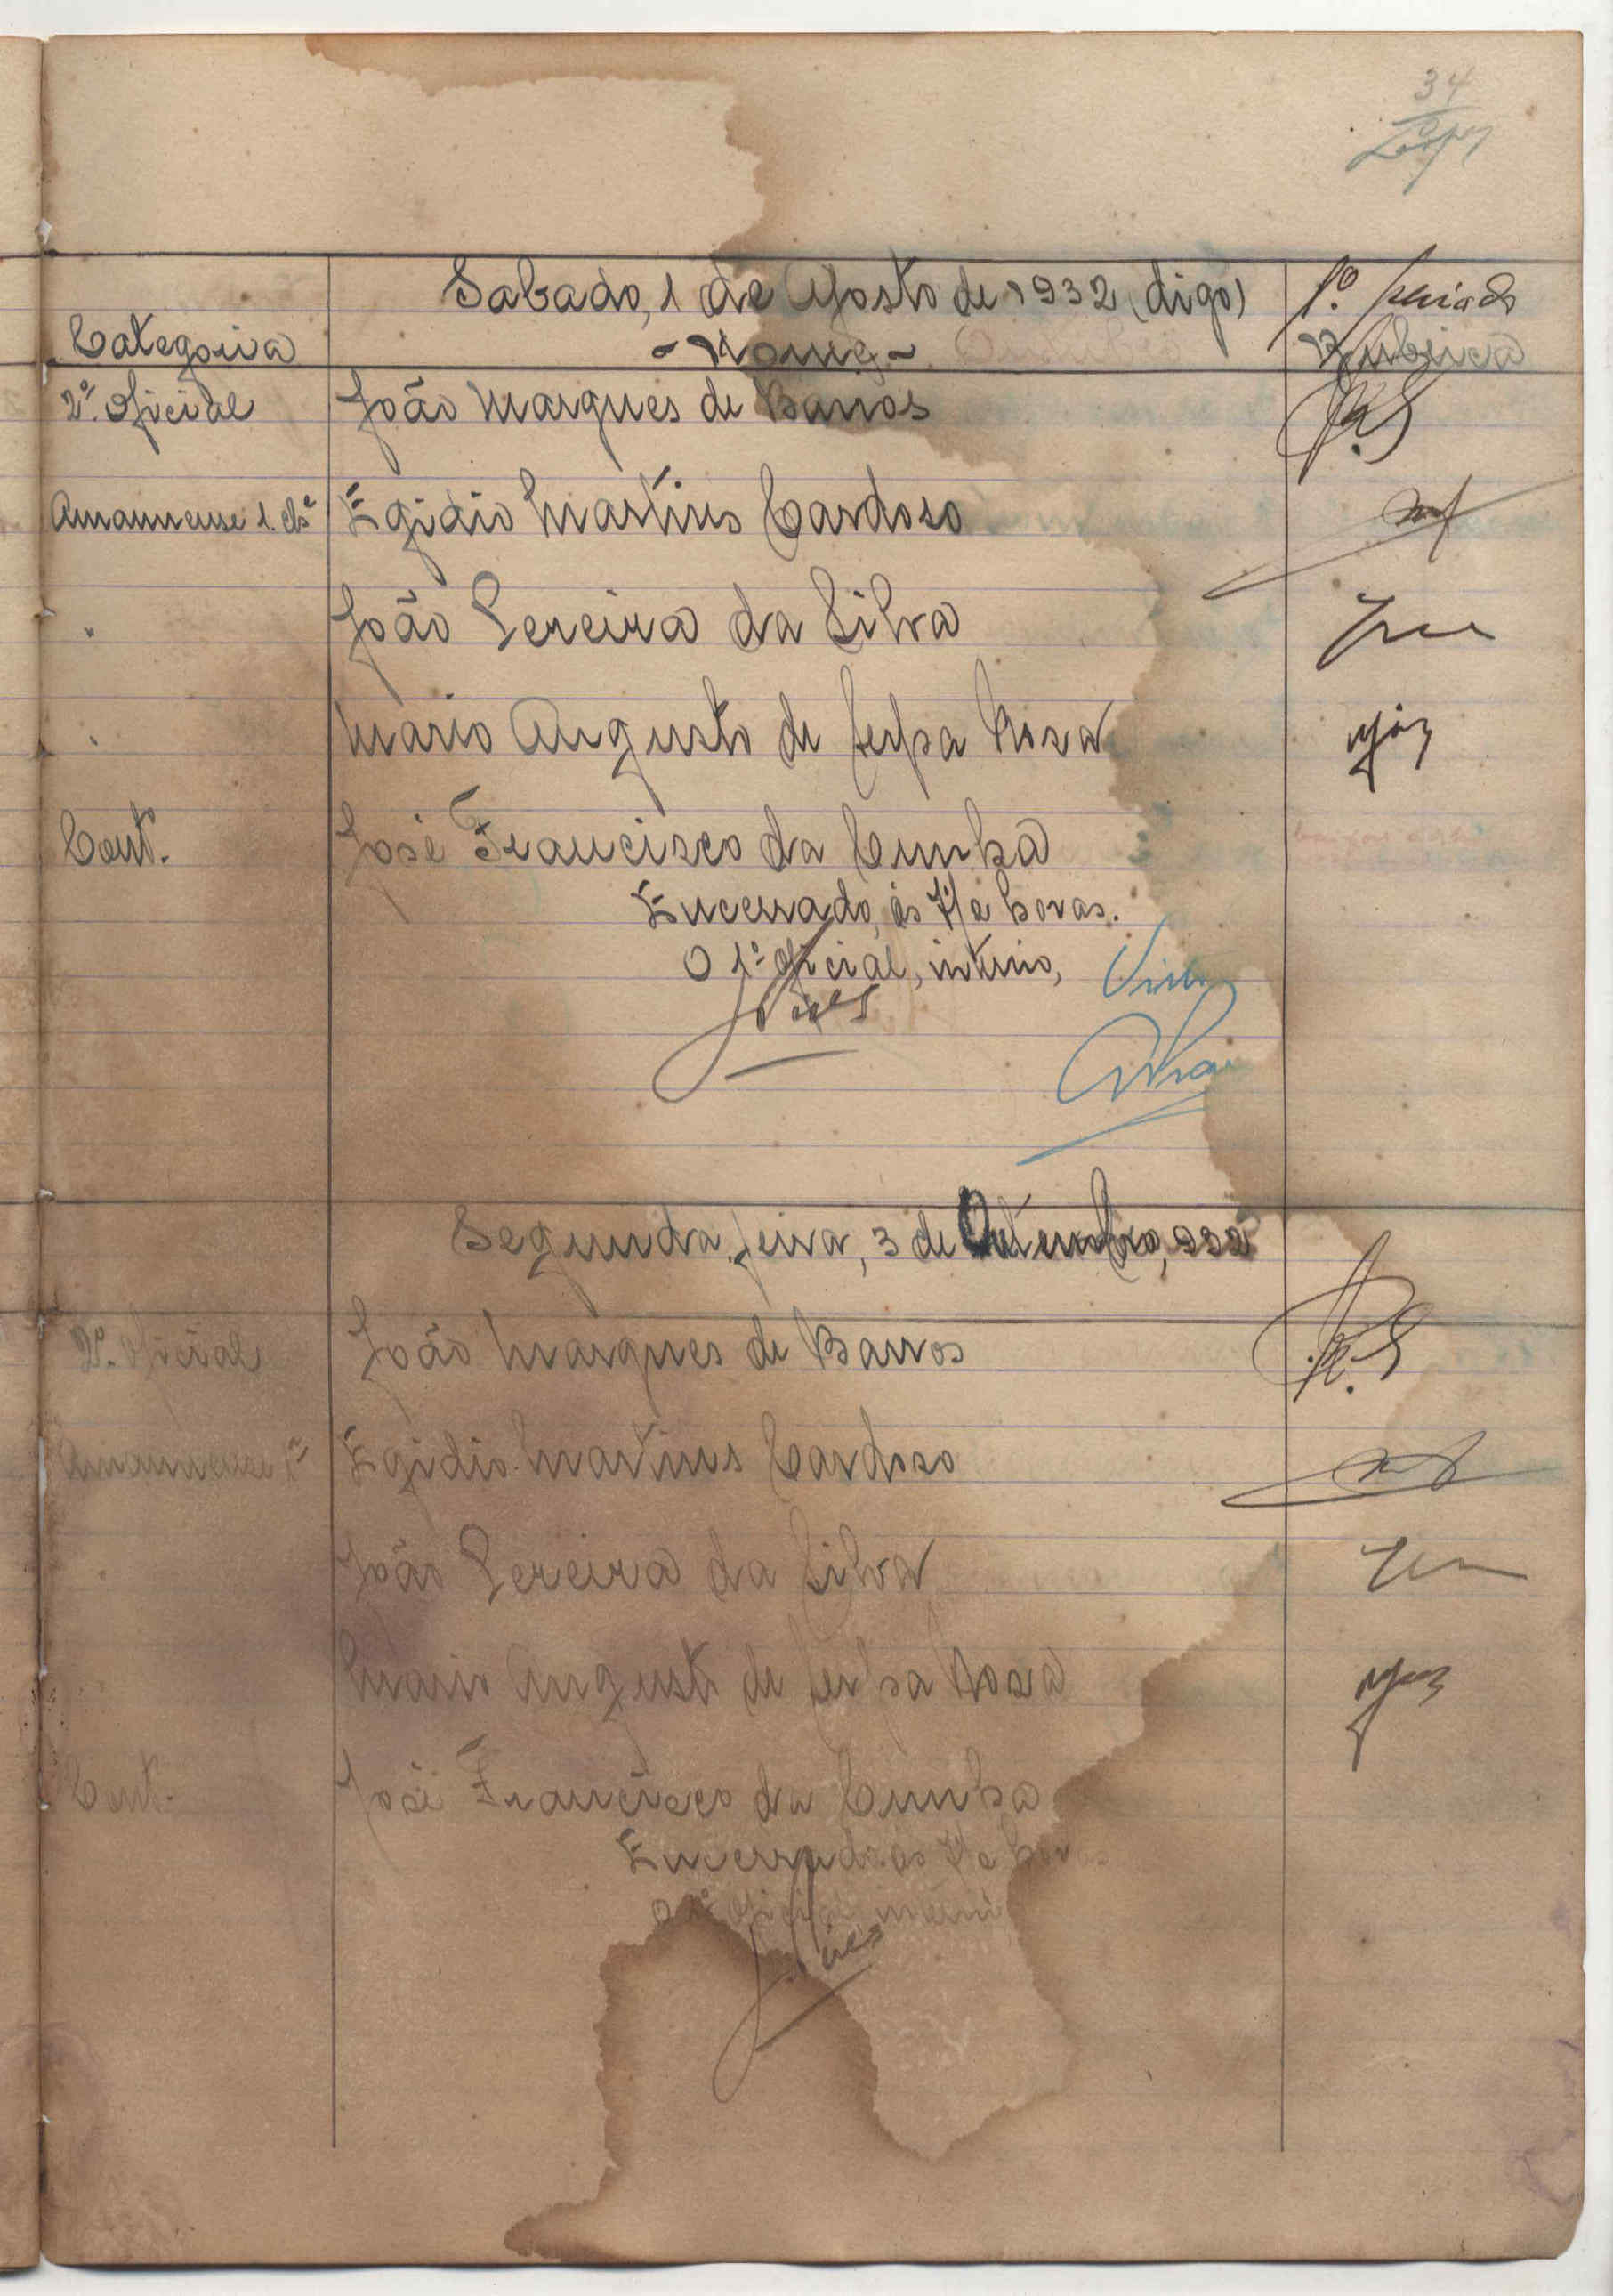 34
Sabado, 1 de Agosto de 1932 (digo)
1.º periodo
Categoria
- Nome -
Rubrica
2.º Oficial
João Marques de Barros
Amanuense 1. cls.ª
Egidio Martins Cardoso
"
João Pereira da Silva
"
Mario Augusto de Serpa Rosa
Cont.
José Francisco da Cunha
Encerrado, ás 7 1/2 horas.
O 1.º Oficial, interino,
Pires
Visto
Segunda feira, 3 de Outembro, 932
2.º Oficial
João Marques de Barros
Amanuense 1.ª
Egidio Martins Cardoso
"
João Pereira da Silva
Mario Augusto de Serpa Rosa
Cont.
José Francisco da Cunha
Encerrado ás 7 1/2 horas
O 1.º Oficial interino
Pires